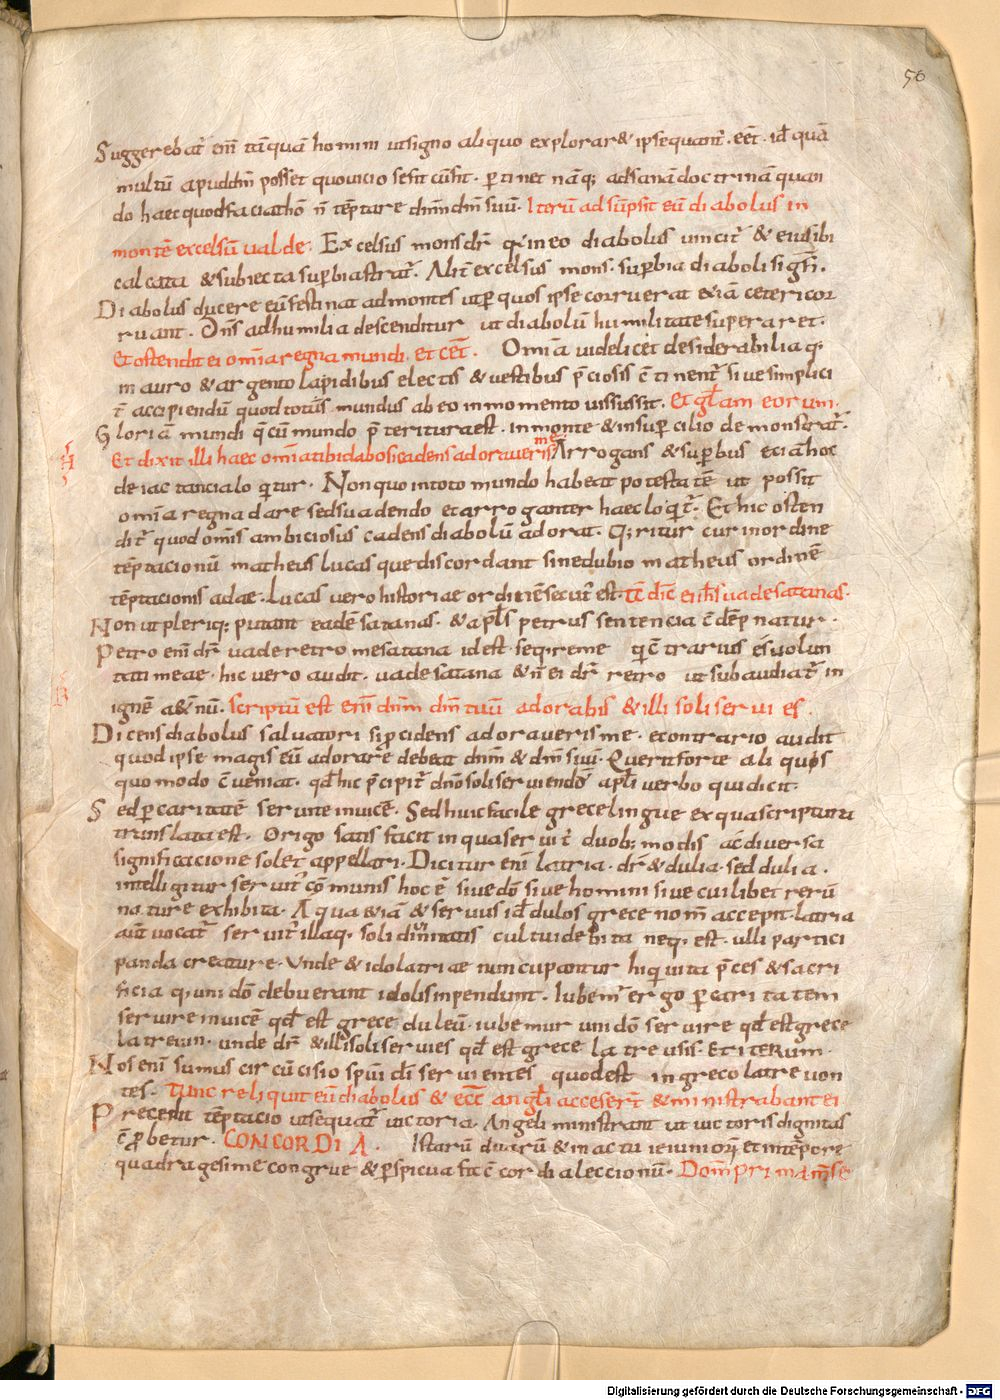 56
Suggerebat᷑ em̄ tāquā homini ut signo aliquo exploraret ipse quant᷑ eēt. id̄ quā
multū apud dm̄ posset quo vicio se fit cū sit. ꝑtinet nāq; ad sanā doctrinā quan
do haec quod faciat hō n̄ tēptare dnm̄ dm̄ suū. Iterū adsūpsit eū diabolus in
montē excelsū ualde. Excelsus mons dr̄ q in eo diabolus uincit᷑ & ei sibi
calcata & subiecta suꝑbia strat᷑. Alit᷑ excelsus mons. suꝑbia diaboli sig.
Diabolus ducere eū festinat ad montes ut ꝑ quos ipse corruerat etiā ceteri cor
ruant. Dn̄s ad humilia descenditur ut diabolū humilitate superaret.
Et ostendit ei omīa regna mundi. et cet̄. Omīa uidelicet desiderabilia q.
in auro & argento lapidibus electis & uestibus p̄ciosis c̄tinent᷑ siue simplicit᷑
accipiendū quod totus mundus ab eo in momento uisus sit. Et gl̄am eorum.
Gloriā mundi q̄ cū mundo p̄teritura est. in monte & in suꝑcilio demonstrat᷑.
Et dixit illi haec omīa tibi dabo si cadens adoraueris me Arrogans & suꝑbus etiā hoc
de iactancia loquitur. Non quo in toto mundo habeat potestatē ut possit
omīa regna dare sed suadendo et arroganter haec loq̄t᷑. Et hic osten
dit᷑ quod omīs ambiciosus cadens diabolū adorat. Q;ritur cur in ordine
tēptacionū matheus lucasque discordant sine dubio matheus ordinē
tēptacionis adae. Lucas uero historiae ordinē secut᷑ est. Tc̄ dic̄ ei ih̄s uade satanas.
Non ut pleriq; putant eadē satanas. & apl̄s petrus sentencia c̄dēpnatur.
Petro em̄ dr̄ uade retro me satana id est seq̄re me qi c̄trarius es uolun
tati meae. hic uero audit. uade satana & n̄ ei dr̄ retro ut subaudiat᷑ in
ignē aet̄nū. scriptū est em̄ dnm̄ dm̄ tuū adorabis & illi soli seruies.
Dicens diabolus saluatori si ꝓcidens adoraueris me. econtrario audit
quod ipse magis eū adorare debeat dnm̄ & dm̄ suū. Querit forte aliquis
quomodo c̄ueniat. qd̄ hic p̄cipit᷑ dn̄o soli seruiendū apl̄i uerbo qui dicit.
Sed ꝑ caritatē seruite inuicē. Sed huic facile grece lingue ex qua scriptura
translata est. Origo satis facit in qua seruit᷑ duob; modis ac diuersa
significacione solet appellari. Dicitur eni latria. dr̄ & dulia. sed dulia.
intelligitur seruit᷑ cōmunis hoc ē siue dō siue homini siue cuilibet rerū
nature exhibita. A qua etiā & seruus id̄ dulos grece nom̄ accepit. latria
aūt uocat᷑ seruit᷑ illa q. soli diuinitatis cultui debita neq. est. ulli partici
panda creature. Vnde & idolatriae nuncupantur hi qui uita p̄ces & sacri
ficia q; uni dō debuerant idolis inpendunt. Iubem᷑ ergo ꝑ caritatem
seruire inuicē qd̄ est grece duleū. iubemur uni dō seruire qd̄ est grece
latreuin. unde dr̄ & illi soli seruies qd̄ est grece latreusis. Et iterum.
Nos eni sumus circūcisio spūi dī seruientes quod est in greco latreuon
tes. Tunc reliquit eū diabolus & ecc̄ angl̄i accesert᷑ & ministrabant ei
Precedit tēptacio ut sequat᷑ uictoria. Angeli ministrant ut uictoris dignitas
c̄ꝓbetur. CONCORDIA. Istarū duarū & in actu ieiuniorū et in tēpore
quadragesime congrue & ꝑspicua fit c̄cordia leccionū. Dom̄ prima m̄se
Digitalisierung gefördert durch die Deutsche Forschungsgemeinschaft - DFG